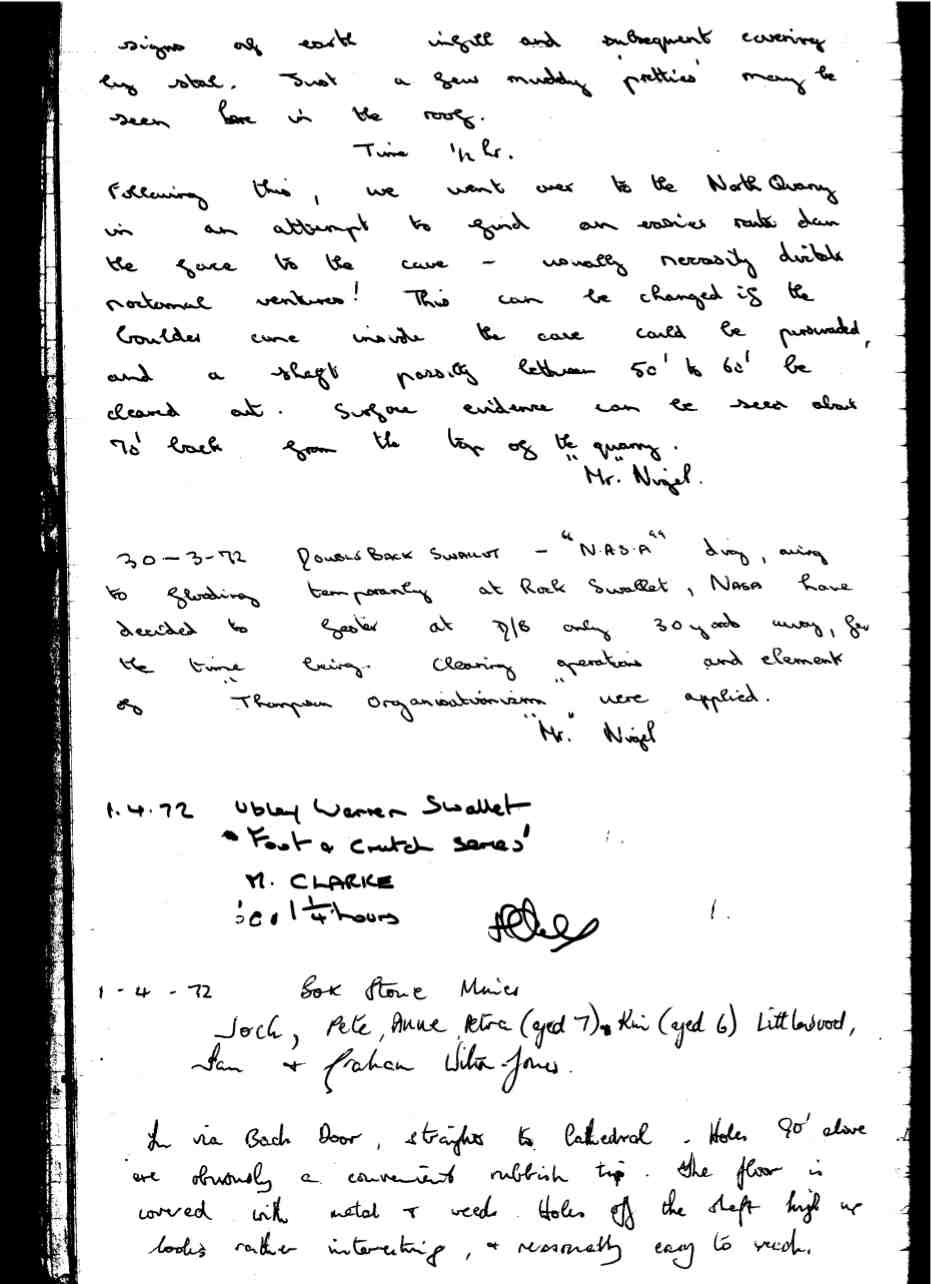 signs of earth infill and subsequent covering
by stal. Just a few muddy 'pretties' may be
seen here in the roof.
Time ½ hr.
Following this, we went over to the North Quarry
in an attempt to find an easier route down
the face to the cave - usually necessity dictats
nocturnal ventures! This can be changed if the
boulder cone inside the cave could be persuaded,
and a shaft possibly between 50' to 60' be
cleared out. Surface evidence can be seen about
70' back from the top of the quarry.
"Mr." Nigel.
30-3-72 DOUBLE BACK SWALLET - "N.A.S.A" dig, owing
to flooding temporarily at Rock Swallet, NASA have
decided to fester at D/B only 30 yards away, for
the time being. Clearing operations and element
of "Thompson Organisationism" were applied.
"Mr." Nigel
1.4.72 Ubley Warren Swallet
'Foot & Crutch series'
M. CLARKE
1¼ hours
1-4-72 Box Stone Mines
Jock, Pete, Anne, Petra (aged 7) & Kim (aged 6) Littlewood,
Ian + Graham Wilton-Jones.
In via Back Door, straight to Cathedral. Holes 90' above
are obviously a convenient rubbish tip. The floor is
covered with metal + weeds. Holes off the shaft high up
looks rather interesting, + reasonably easy to reach.